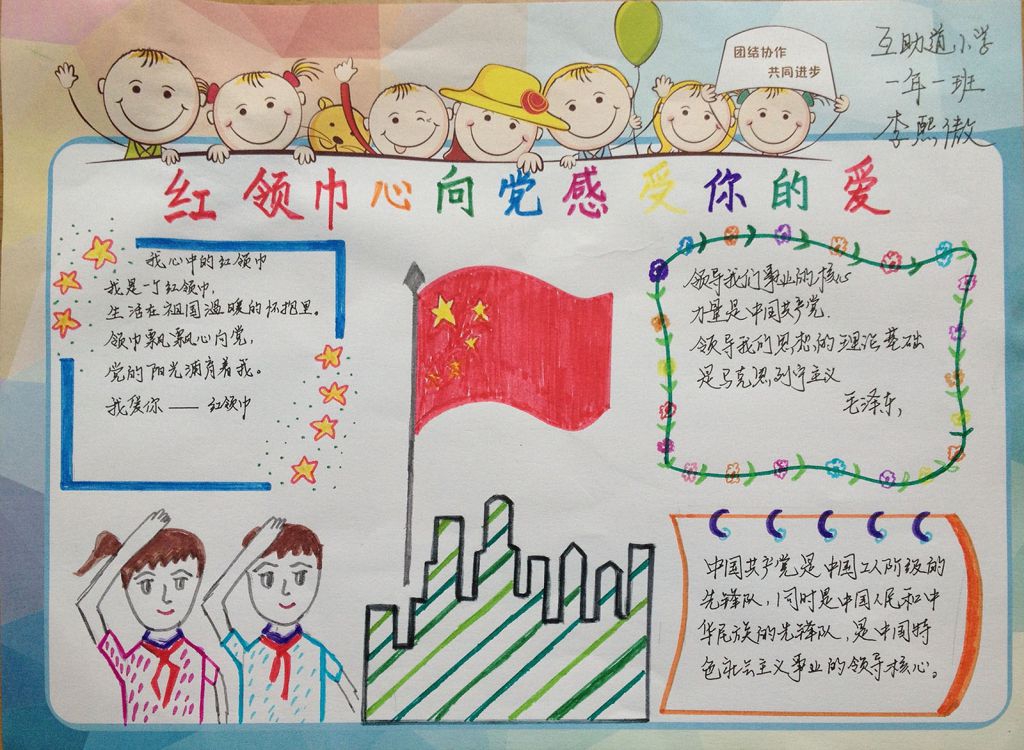 团结协作
共同进步
互助道小学
一年一班
李熙傲
红领巾心向党感受你的爱
我心中的红领巾
我是一个红领巾,
生活在祖国温暖的怀抱里。
领巾飘飘心向党,
党的阳光沐育着我。
我爱你——红领巾
领导我们事业的核心
力量是中国共产党.
领导我们思想的理论基础
是马克思列宁主义
毛泽东,
中国共产党是中国工人阶级的
先锋队,同时是中国人民和中
华民族的先锋队,是中国特
色社会主义事业的领导核心。